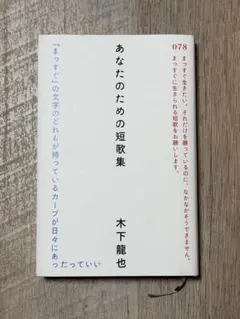 078
まっすぐ生きたい。それだけを願っているのに、なかなかそうできません。
まっすぐに生きられる短歌をお願いします。
あなたのための短歌集
木下龍也
『まっすぐ』の文字のどれもが持っているカーブが日々にあったっていい